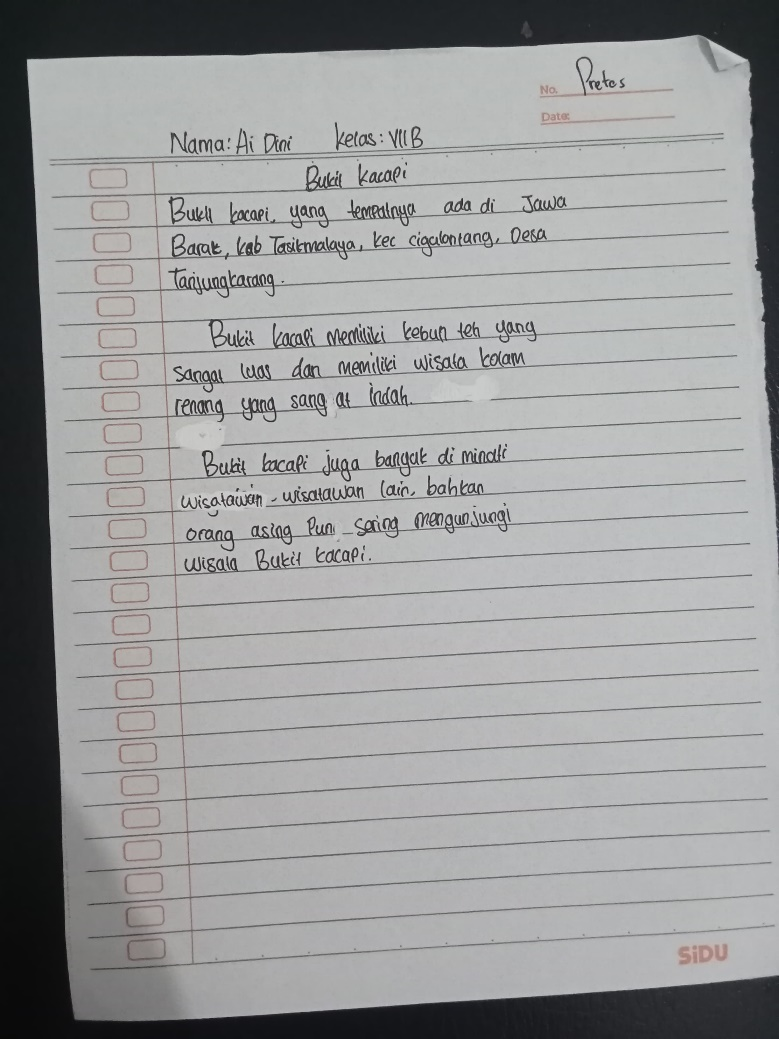 No. Pretes
Date:
Nama: Ai Dini kelas: VII B
Bukit kacapi
Bukit kacapi, yang tempatnya ada di Jawa
Barat, kab Tasikmalaya, kec cigalontang, Desa
Tanjungkarang.
Bukit kacapi memiliki kebun teh yang
sangat luas dan memiliki wisata kolam
renang yang sang at indah.
Bukit kacapi juga banyak di minati
wisatawan - wisatawan lain, bahkan
orang asing Pun sering mengunjungi
wisata Bukit kacapi.
SiDU